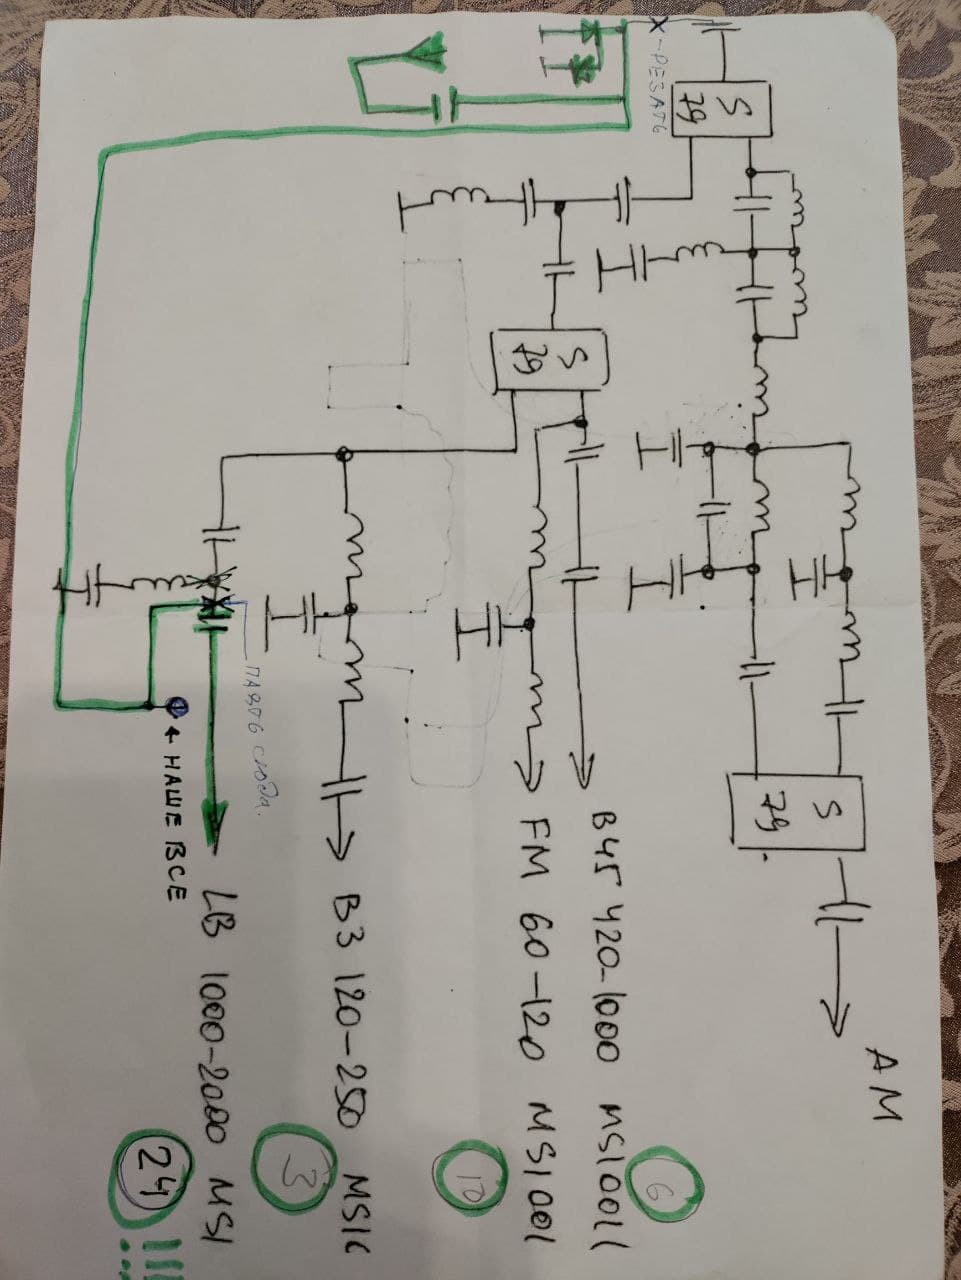 X-РЕЗАТЬ
S
79
S
79
S
79
AM
B45 420-1000 MS1001
6
FM 60-120 MS1001
10
B3 120-250 MS1
3
ПАЯТЬ СЮДА.
LB 1000-2000 MS1
← НАШЕ ВСЕ
24 !!!